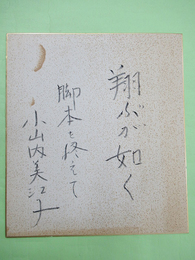 翔ぶが如く
脚本を終えて
小山内美江子